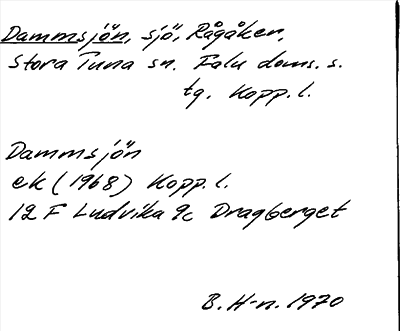 Dammsjön, sjö, Rågåker,
Stora Tuna sn. Falu doms. s.
tg. Kopp. l.
Dammsjön
ek (1968) Kopp. l.
12 F Ludvika 9c Dragberget
B. H-n. 1970